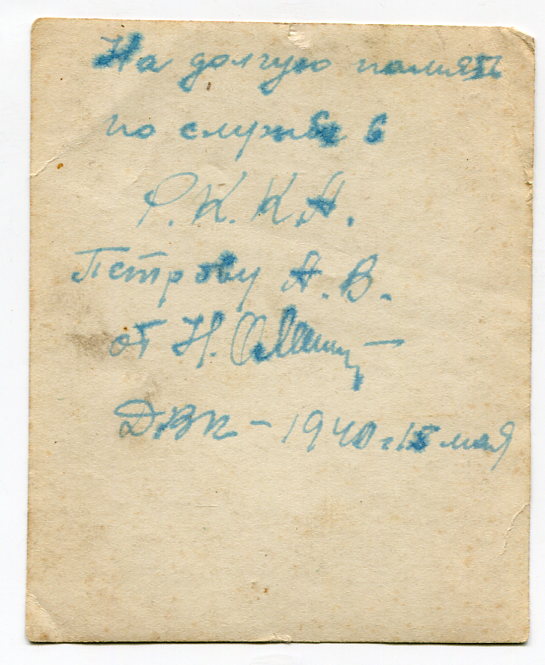 На долгую память
по службе в
Р.К.К.А.
Петрову А.В.
от Н.
ДВК - 1940 г. 15 мая